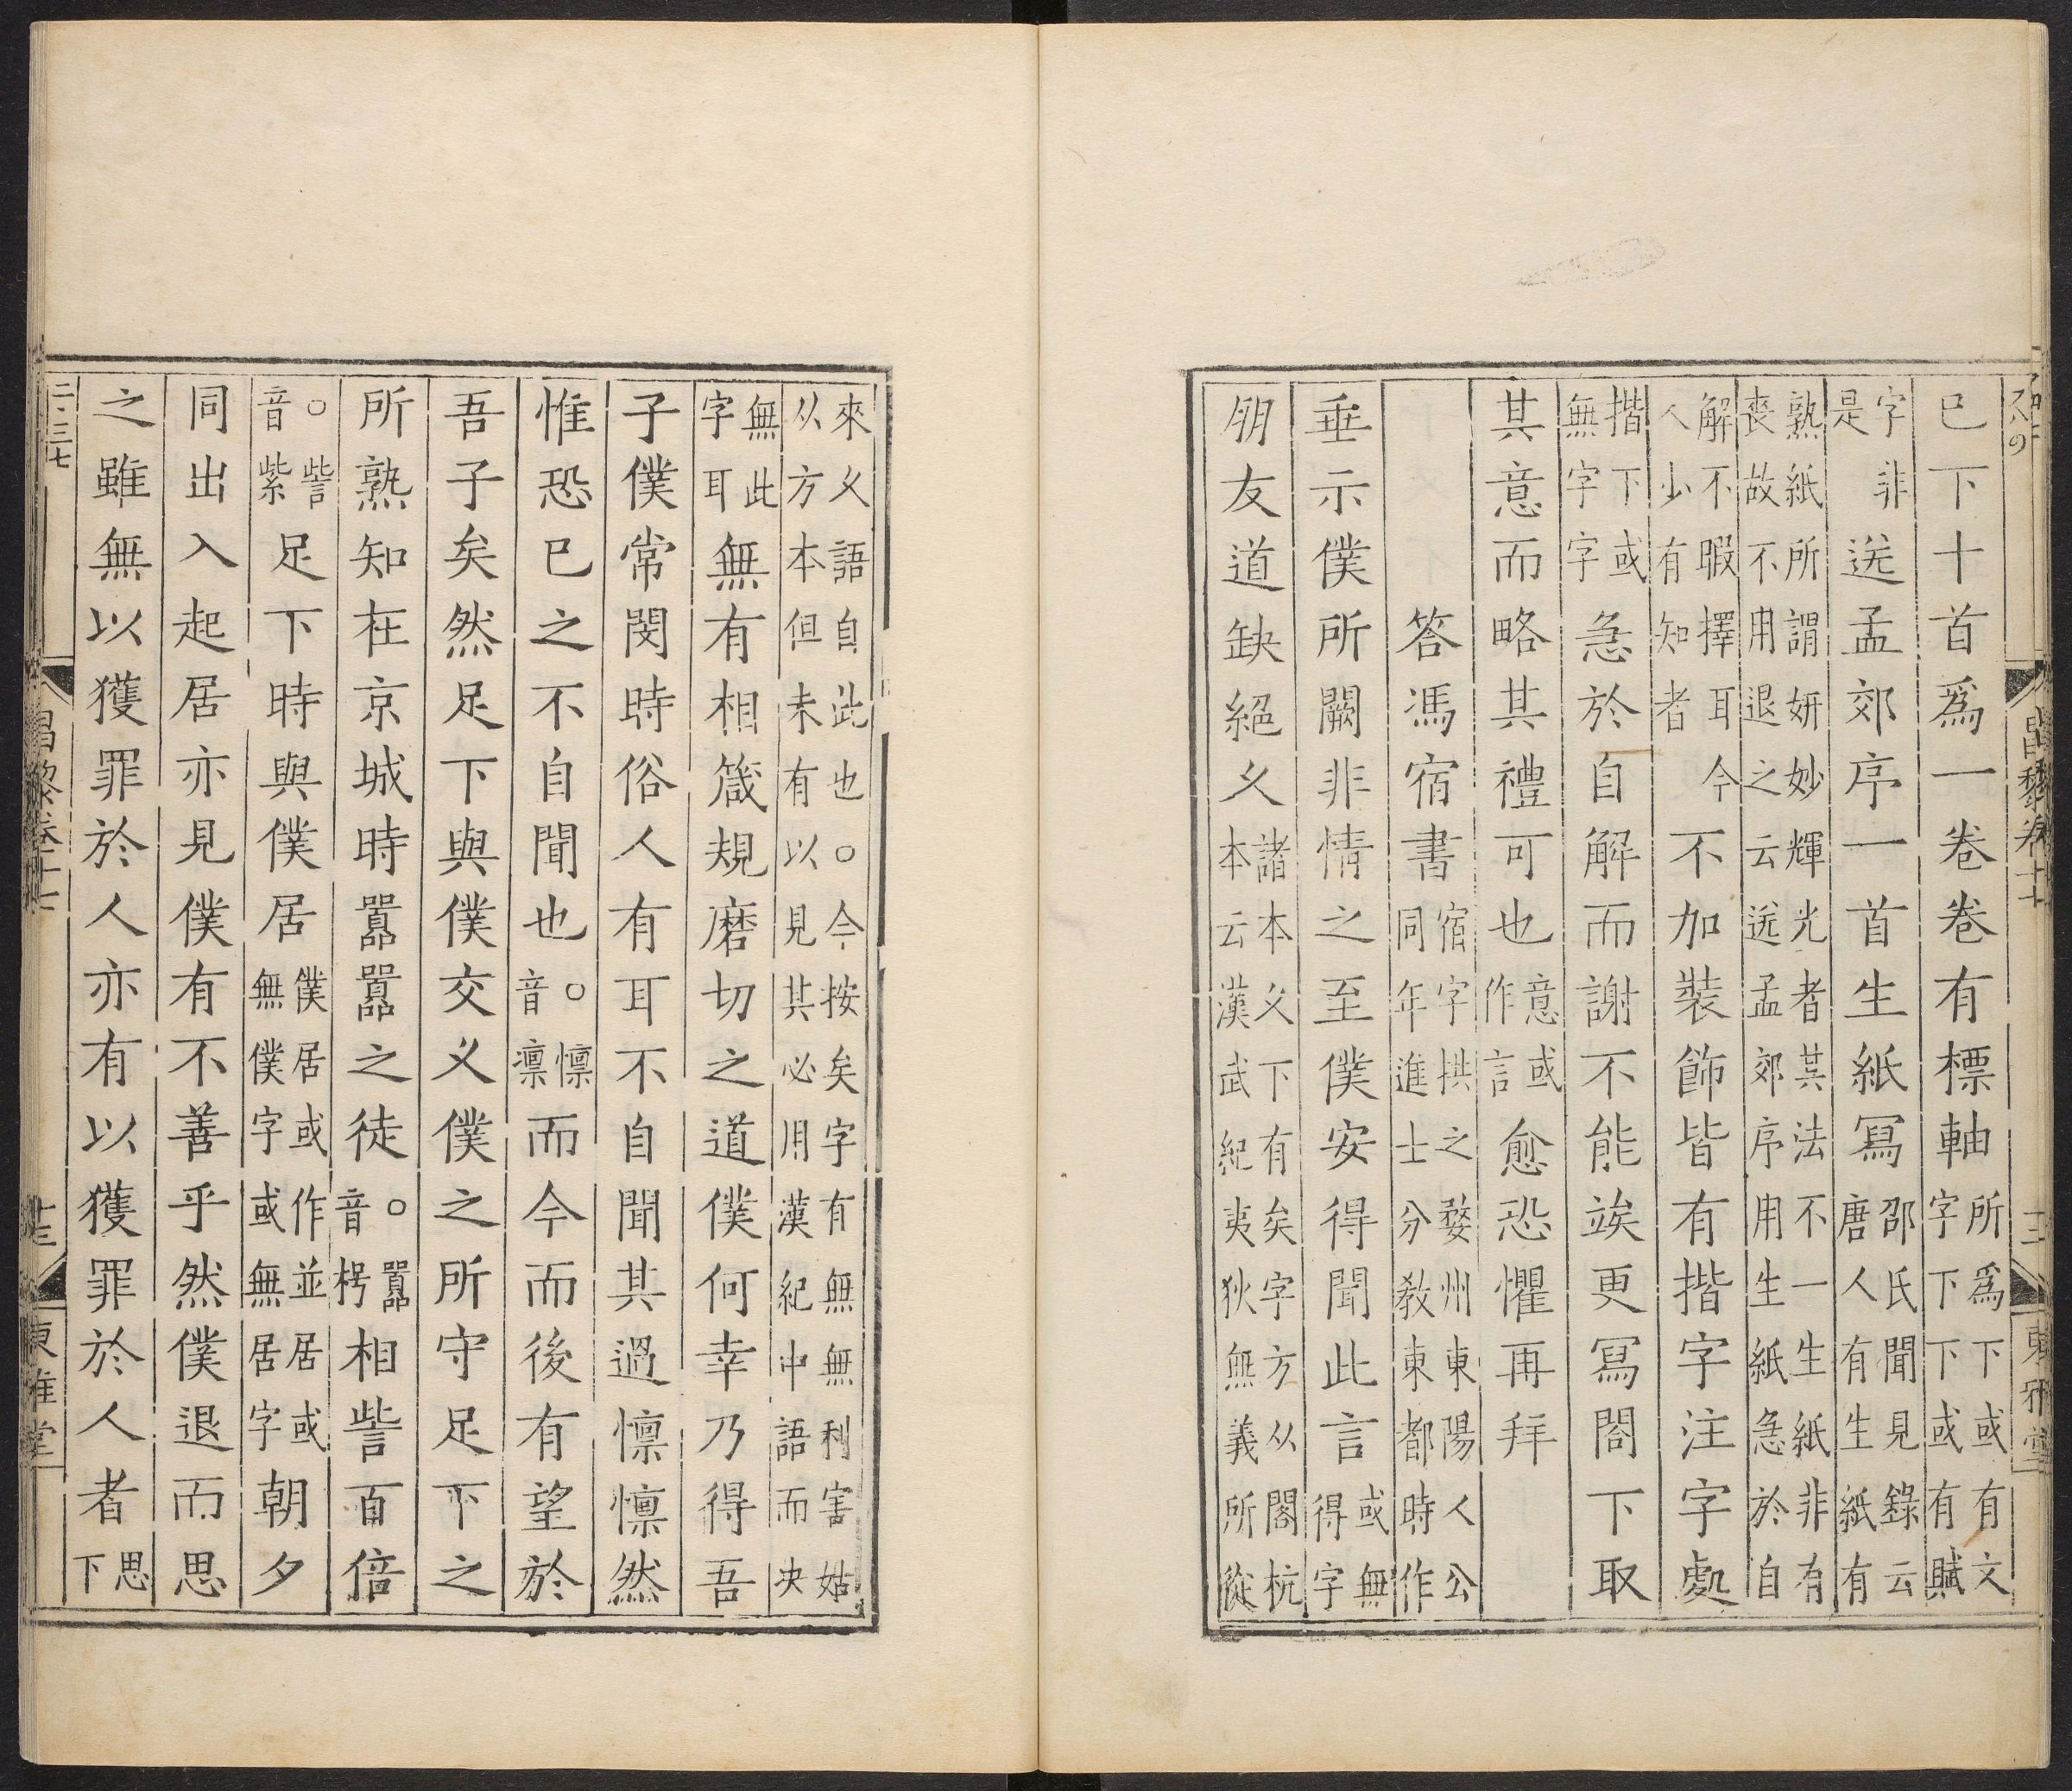 已下十首爲一卷卷有標軸所爲下或有文字下下或有賦
字非是送孟郊序一首生紙寫邵氏聞見錄云唐人有生紙有
熟紙所謂妍妙輝光者其法不一生紙非有喪故不用退之云送孟郊序用生紙急於自
解不暇擇耳今人少有知者不加裝飾皆有揩字注字處
揩下或無字字急於自解而謝不能竢更寫閤下取
其意而略其禮可也意或作言愈恐懼再拜
答馮宿書宿字拱之婺州東陽人公同年進士分敎東都時作
垂示僕所闕非情之至僕安得聞此言或無得字
朋友道缺絕久諸本久下有矣字方从閣杭本云漢武紀夷狄無義所從
來久語自此也○今按矣字有無無利害姑从方本但未有以見其必用漢紀中語而決
無此字耳無有相箴規磨切之道僕何幸乃得吾
子僕常閔時俗人有耳不自聞其過懍懍然
惟恐已之不自聞也○懍音凛而今而後有望於
吾子矣然足下與僕交久僕之所守足下之
所熟知在京城時囂囂之徒○囂音枵相訾百倍
○訾音紫足下時與僕居僕居或作並居或無僕字或無居字朝夕
同出入起居亦見僕有不善乎然僕退而思
之雖無以獲罪於人亦有以獲罪於人者思下
二·三七 昌黎卷十七 十三 東雅堂